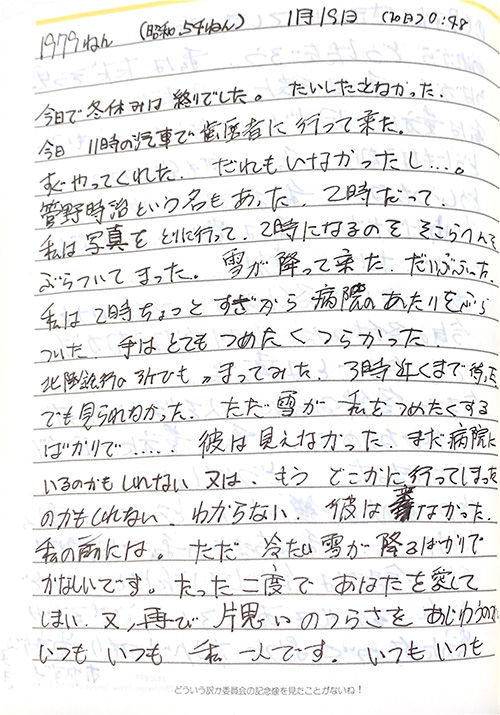 1979ねん (昭和.54ねん) 1月19日 0:48
今日で冬休みは終りでした。 たいしたことなかった.
今日 11時の汽車で歯医者に行って来た。
すぐやってくれた. だれもいなかったし...。
菅野時治という名もあった. 2時だって.
私は写真をとりに行って. 2時になるのを そこらへんを
ぶらついてまった。 雪が降って来た. だいぶふった.
私は2時ちょっとすぎから 病院のあたりをぶら
ついた. 手はとてもつめたくつらかった
北陸銀行の所でも まってみた. 3時近くまで待っ
でも見られなかった. ただ雪が 私をつめたくする
ばかりで..... 彼は見えなかった. まだ病院に
いるのかもしれない 又は. もう どこかに行ってしまった
のかもしれない. わからない. 彼は なかった.
私の前には。 ただ 冷たい雪が降るばかりで
かなしいです。 たった二度で あなたを愛して
しまい. 又, 再び 片思いのつらさを あじわうの
いつも いつも 私 一人です。 いつも いつも
どういう訳か委員会の記念像を見たことがないね!